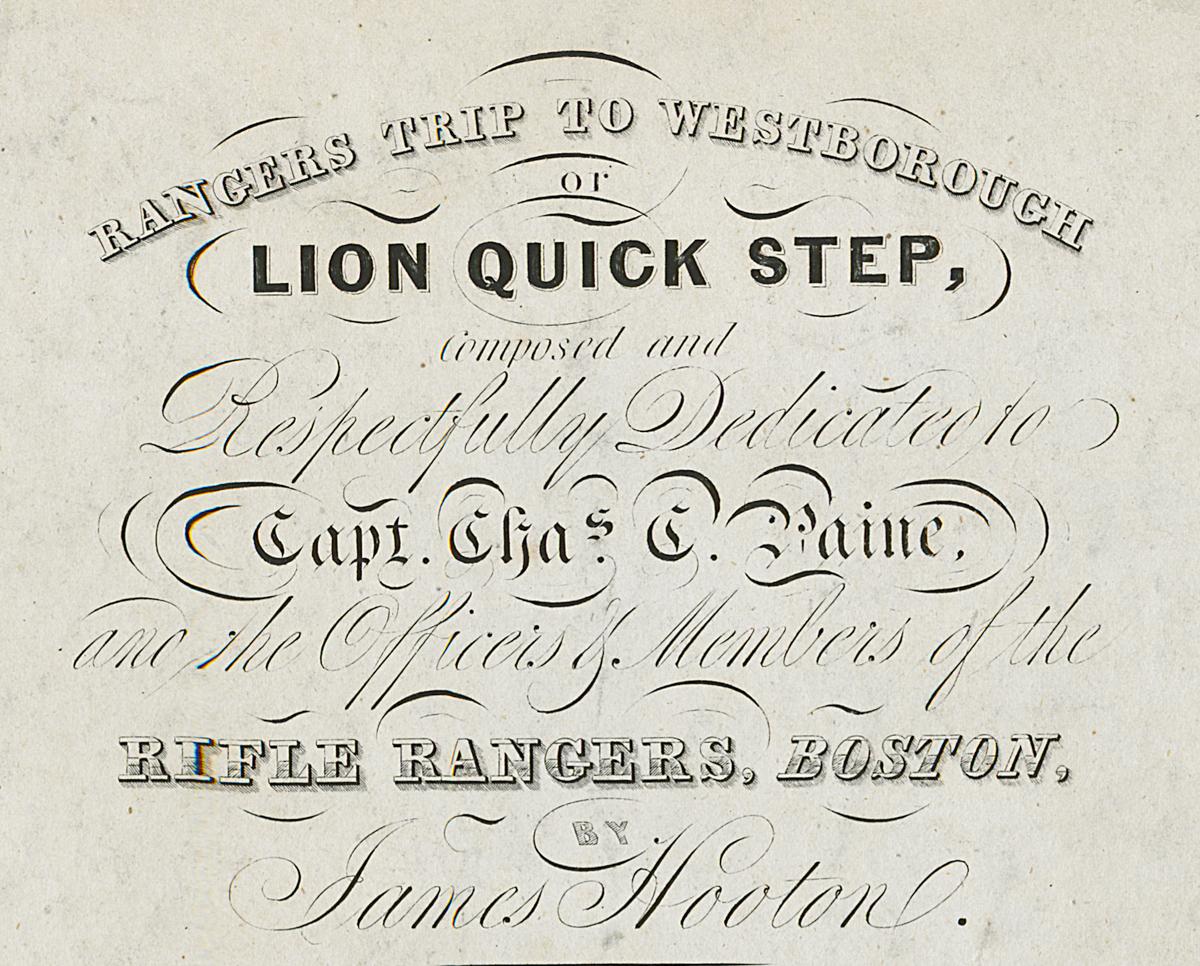 RANGERS TRIP TO WESTBOROUGH
or
LION QUICK STEP,
Composed and
Respectfully Dedicated to
Capt. Chaˢ. C. Paine,
and the Officers & Members of the
RIFLE RANGERS, BOSTON,
BY
James Hooton.